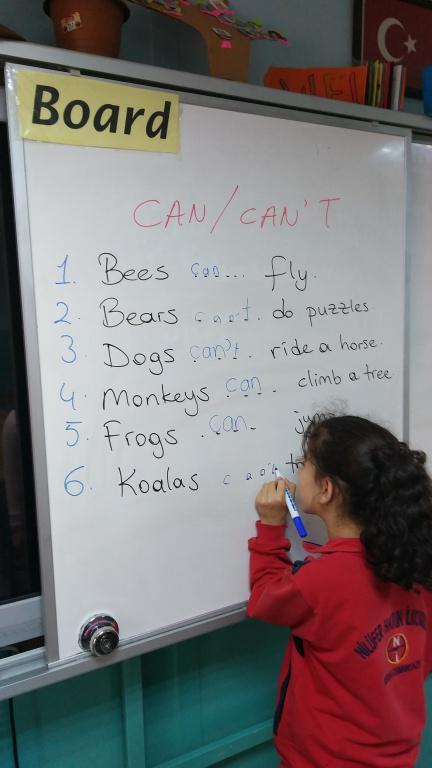 Board
CAN/CAN'T
1. Bees can... fly.
2. Bears can't. do puzzles
3. Dogs can't. ride a horse.
4. Monkeys can. climb a tree
5. Frogs .can. jum
6. Koalas can't
NİLÜFER